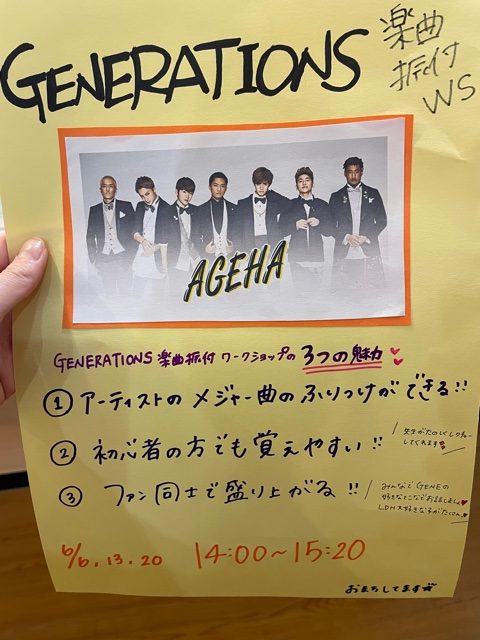 GENERATIONS
楽曲
振付
WS
AGEHA
GENERATIONS 楽曲振付 ワークショップの 3つの魅力
① アーティストの メジャー曲の ふりつけが できる!!
② 初心者の方でも覚えやすい!!
先生がたのしくレクチャー
してくれます
③ ファン同士で盛り上がる!!
みんなでGENEの
好きなとこなどお話しましょ
LDH大好きな子がたくさん
6/6.13.20 14:00~15:20
おまちしてます☆